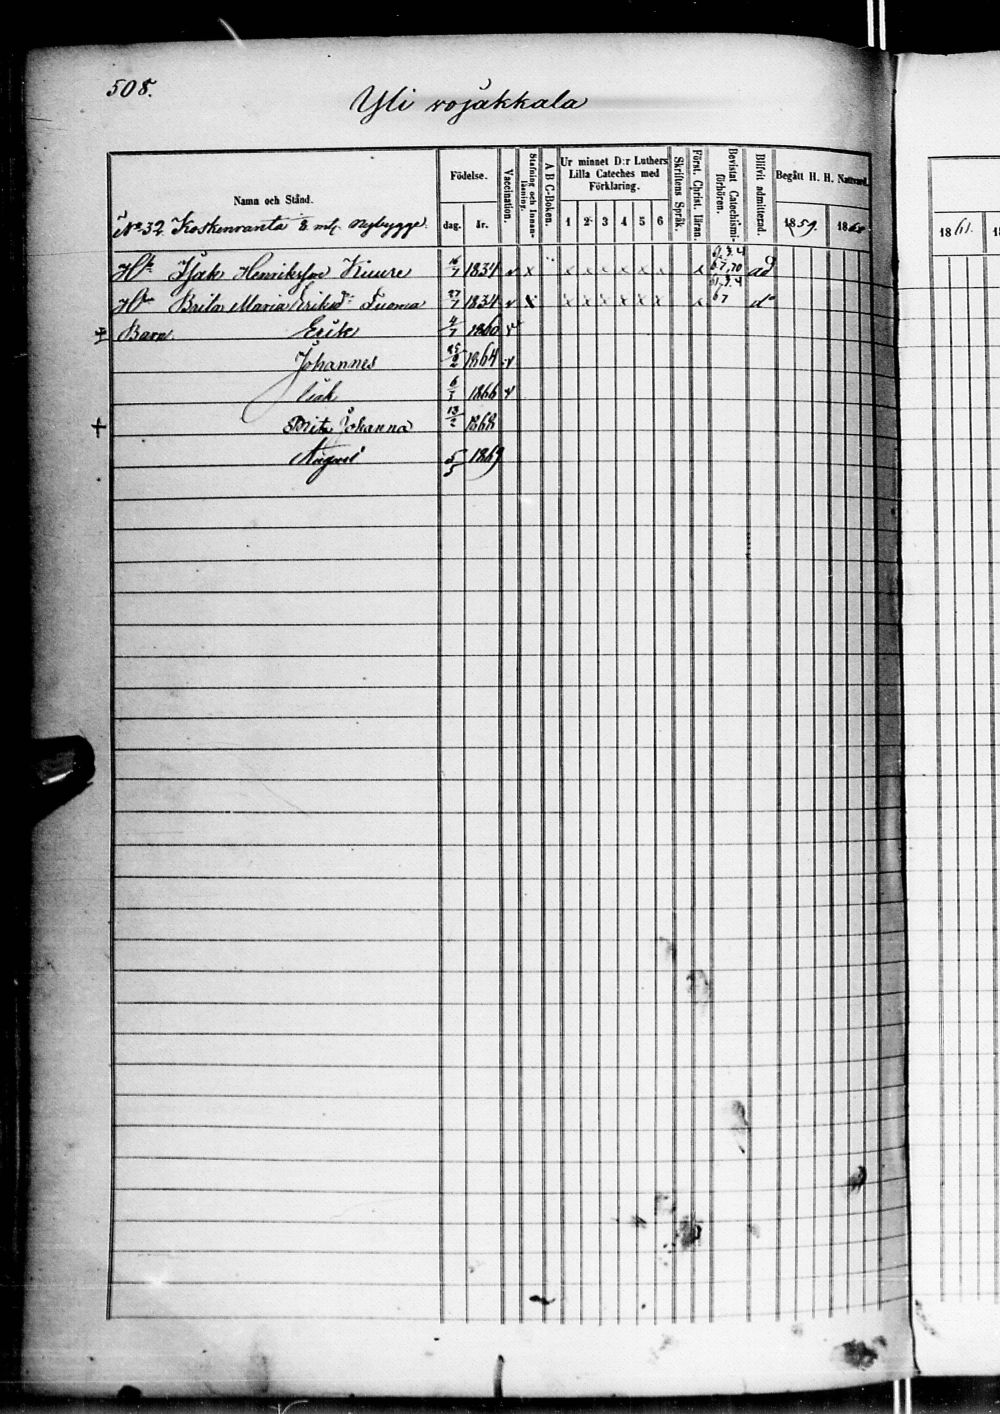 508.
Yli vojakkala
Namn och Stånd.
Födelse.
dag. år.
Vaccination.
Stafning och Innanläsning.
A B C-Boken.
Ur minnet D:r Luthers Lilla Cateches med Förklaring.
1 2 3 4 5 6
Skriftens Språk.
Först. Christ. läran.
Bevistat Catechismiförhören.
Blifvit admitterad.
Begått H. H. Nattvard.
1859. 1860
1861.
No 32. Koskenranta nybygge.
Isak Henriksson Kuure 16/7 1834 v x x x x x x x x ad
Brita Maria Eriksd: Tuoma 27/7 1834 v x x x x x x x x 67 do
+ Barn Erik 4/7 1860 v
Johannes 25/2 1864 v
Isak 6/1 1866 v
+ Brita Johanna 13/2 1868
August 5/3 1869